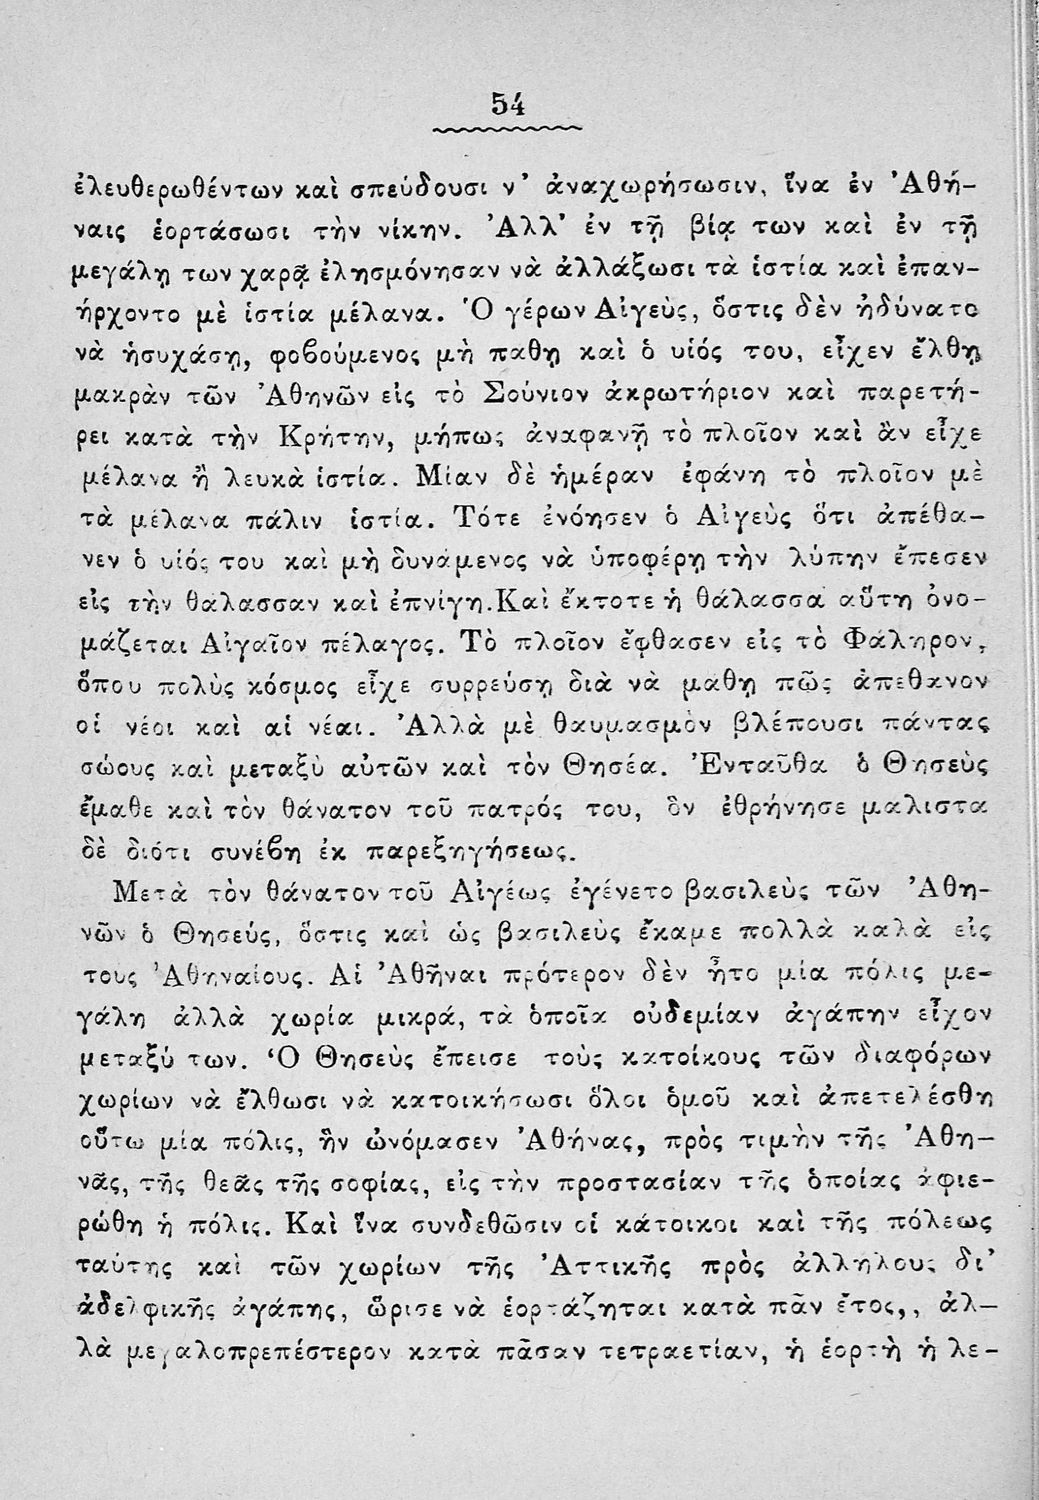 54
ἐλευθερωθέντων καὶ σπεύδουσι ν' ἀναχωρήσωσιν, ἵνα ἐν Ἀθή-
ναις ἑορτάσωσι τὴν νίκην. Ἀλλ' ἐν τῇ βίᾳ των καὶ ἐν τῇ
μεγάλῃ των χαρᾷ ἐλησμόνησαν νὰ ἀλλάξωσι τὰ ἱστία καὶ ἐπαν-
ήρχοντο μὲ ἱστία μέλανα. Ὁ γέρων Αἰγεὺς, ὅστις δὲν ἠδύνατο
νὰ ἡσυχάσῃ, φοβούμενος μὴ παθῃ καὶ ὁ υἱός του, εἶχεν ἔλθῃ
μακρὰν τῶν Ἀθηνῶν εἰς τὸ Σούνιον ἀκρωτήριον καὶ παρετή-
ρει κατὰ τὴν Κρήτην, μήπως ἀναφανῇ τὸ πλοῖον καὶ ἂν εἶχε
μέλανα ἢ λευκὰ ἱστία. Μίαν δὲ ἡμέραν ἐφάνη τὸ πλοῖον μὲ
τὰ μέλανα πάλιν ἱστία. Τότε ἐνόησεν ὁ Αἰγεὺς ὅτι ἀπέθα-
νεν ὁ υἱός του καὶ μὴ δυνάμενος νὰ ὑποφέρῃ τὴν λύπην ἔπεσεν
εἰς τὴν θάλασσαν καὶ ἐπνίγη. Καὶ ἔκτοτε ἡ θάλασσα αὕτη ὀνο-
μάζεται Αἰγαῖον πέλαγος. Τὸ πλοῖον ἔφθασεν εἰς τὸ Φάληρον,
ὅπου πολὺς κόσμος εἶχε συρρεύσῃ διὰ νὰ μαθῃ πῶς ἀπεθανον
οἱ νέοι καὶ αἱ νέαι. Ἀλλὰ μὲ θαυμασμὸν βλέπουσι πάντας
σώους καὶ μεταξὺ αὐτῶν καὶ τὸν Θησέα. Ἐνταῦθα ὁ Θησεὺς
ἔμαθε καὶ τὸν θάνατον τοῦ πατρός του, ὃν ἐθρήνησε μαλιστα
δὲ διότι συνέβη ἐκ παρεξηγήσεως.
Μετὰ τὸν θάνατον τοῦ Αἰγέως ἐγένετο βασιλεὺς τῶν Ἀθη-
νῶν ὁ Θησεύς, ὅστις καὶ ὡς βασιλεὺς ἔκαμε πολλὰ καλὰ εἰς
τους Ἀθηναίους. Αἱ Ἀθῆναι πρότερον δὲν ἦτο μία πόλις με-
γάλη ἀλλὰ χωρία μικρά, τὰ ὁποῖα οὐδεμίαν ἀγάπην εἶχον
μεταξύ των. Ὁ Θησεὺς ἔπεισε τοὺς κατοίκους τῶν διαφόρων
χωρίων νὰ ἔλθωσι νὰ κατοικήσωσι ὅλοι ὁμοῦ καὶ ἀπετελέσθη
οὕτω μία πόλις, ἣν ὠνόμασεν Ἀθήνας, πρὸς τιμὴν τῆς Ἀθη-
νᾶς, τῆς θεᾶς τῆς σοφίας, εἰς τὴν προστασίαν τῆς ὁποίας ἀφιε-
ρώθη ἡ πόλις. Καὶ ἵνα συνδεθῶσιν οἱ κάτοικοι καὶ τῆς πόλεως
ταύτης καὶ τῶν χωρίων τῆς Ἀττικῆς πρὸς ἀλλήλους δι'
ἀδελφικῆς ἀγάπης, ὥρισε νὰ ἑορτάζηται κατὰ πᾶν ἔτος,, ἀλ-
λὰ μεγαλοπρεπέστερον κατὰ πᾶσαν τετραετίαν, ἡ ἑορτὴ ἡ λε-